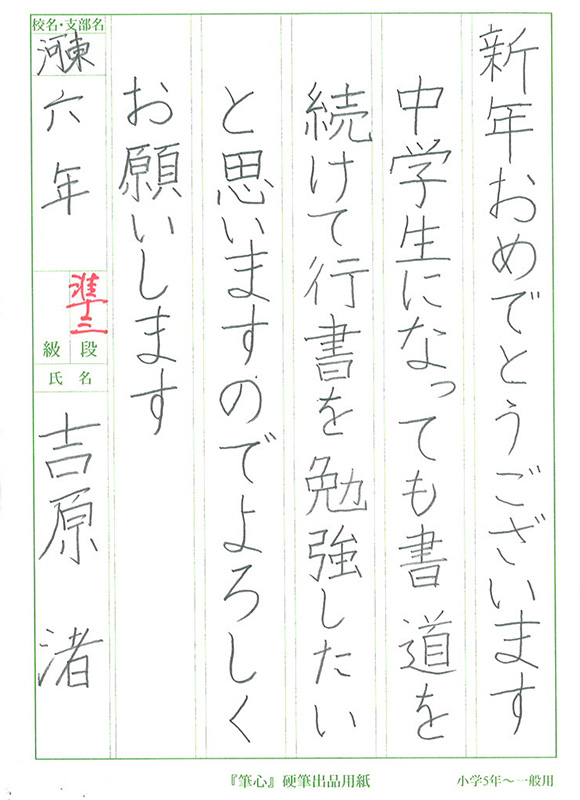 新年おめでとうございます
中学生になっても書道を
続けて行書を勉強したい
と思いますのでよろしく
お願いします
校名・支部名
河東
六年
準三
段
級
氏名
吉原渚
『筆心』硬筆出品用紙
小学5年〜一般用